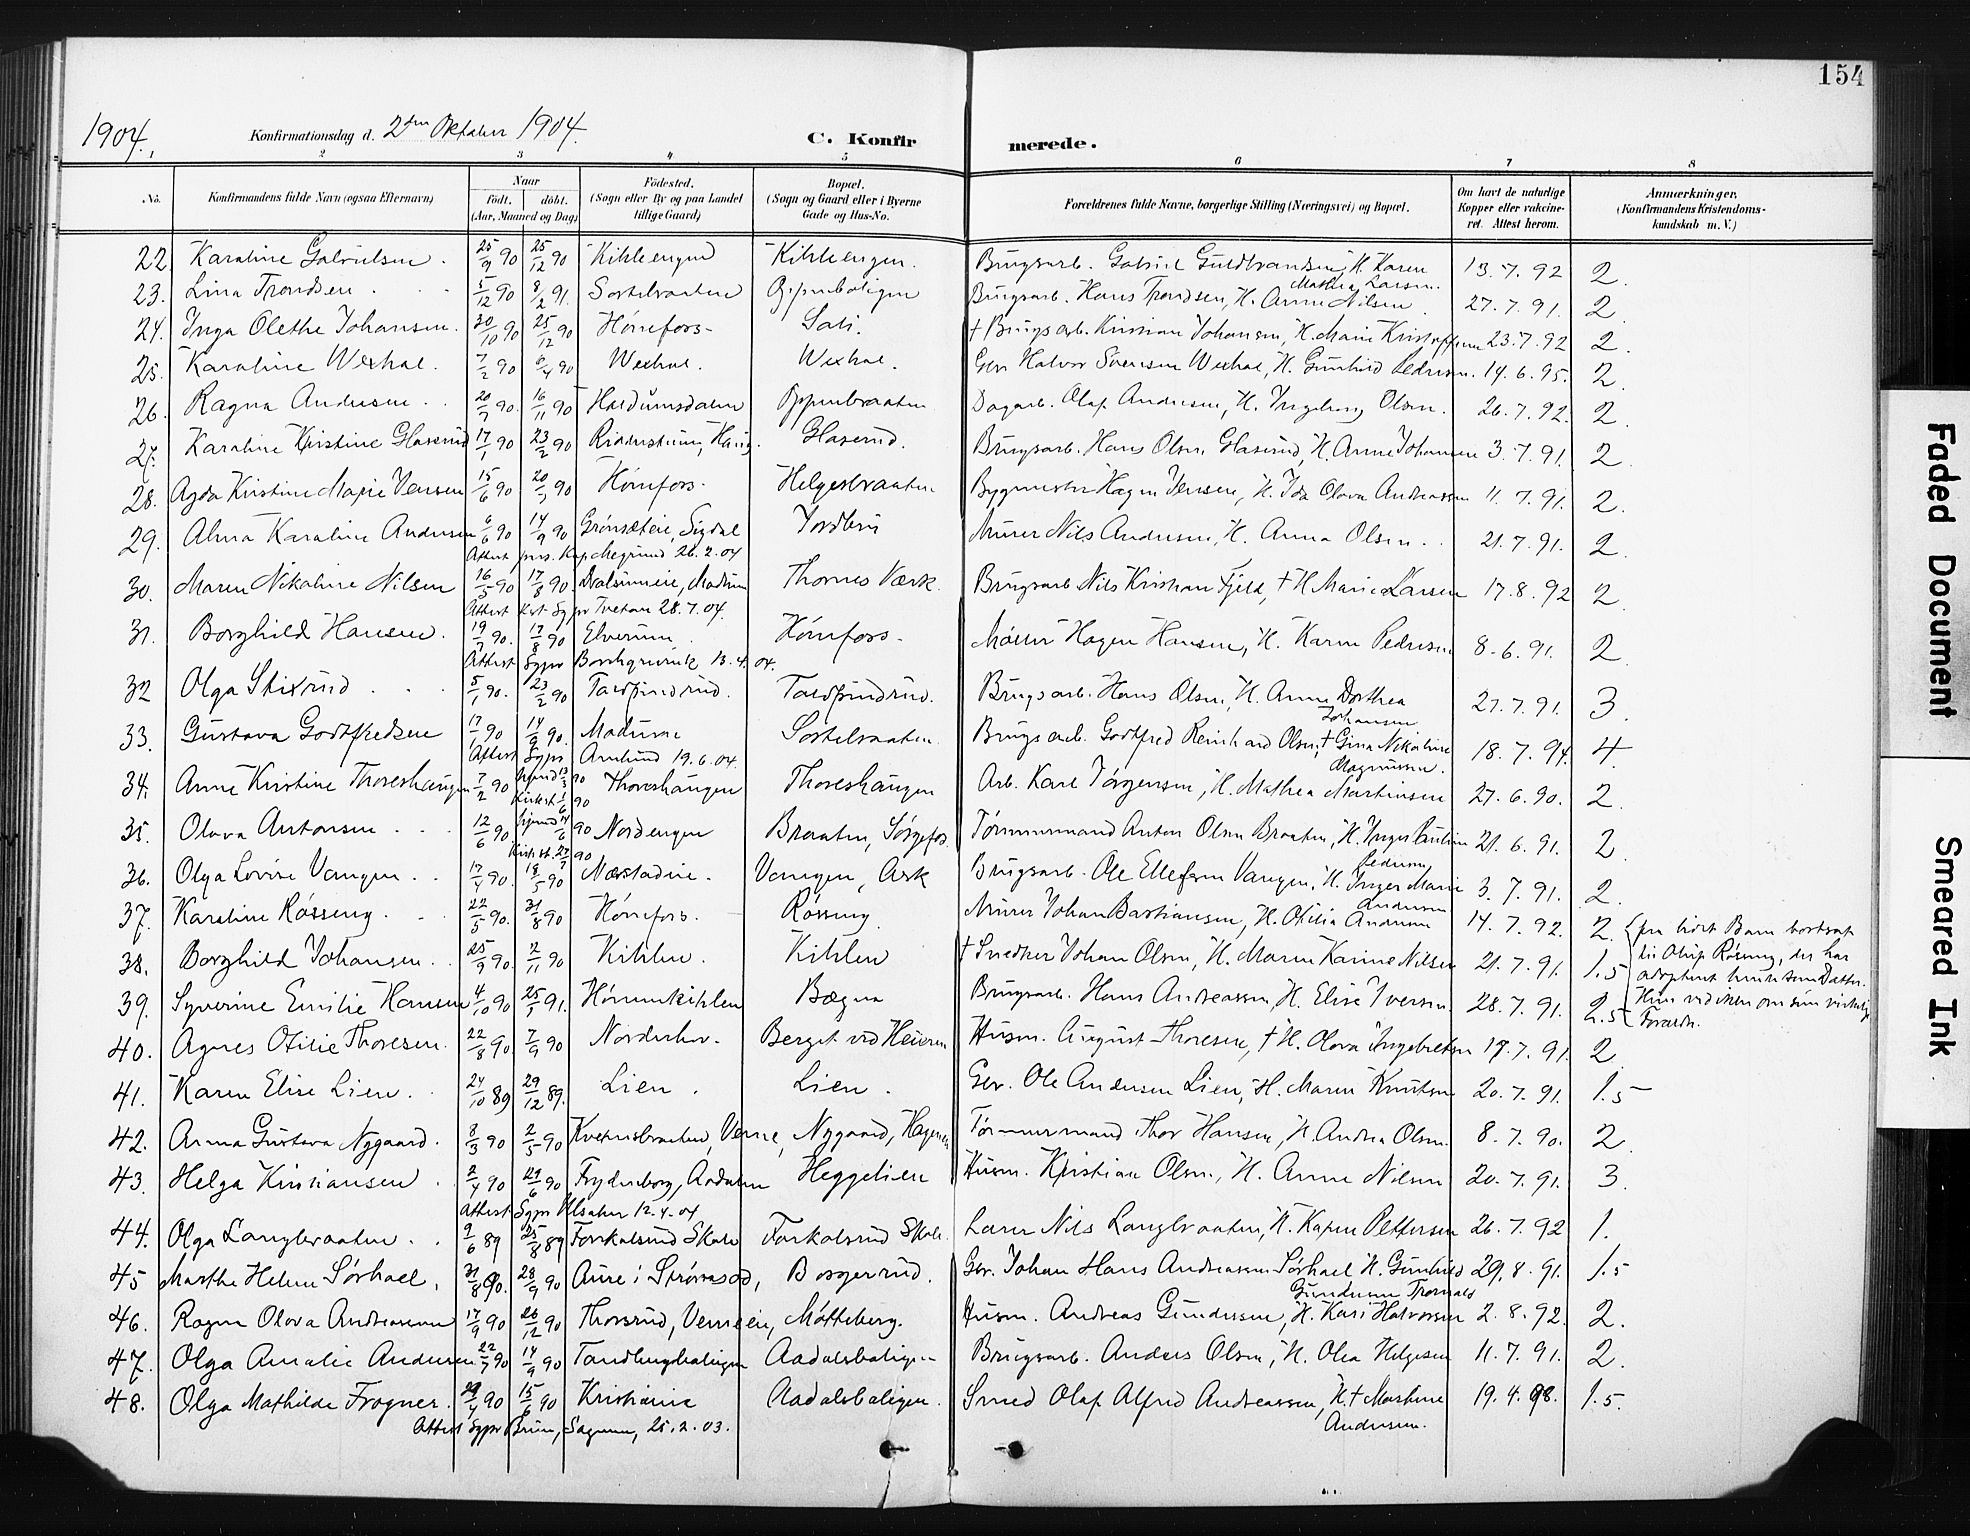 154
1904. Konfirmationsdag d. 2den Oktober 1904. C. Konfirmerede.
1 2 3 4 5 6 7 8
No. Konfirmandens fulde Navn (ogsaa Efternavn) Naar født. døbt. (Aar, Maaned og Dag) Fødested. (Sogn eller By og paa Landet tillige Gaard) Bopæl. (Sogn og Gaard eller i Byerne Gade og Hus-No. Forældrenes fulde Navne, borgerlige Stilling (Næringsvei) og Bopæl. Om havt de naturlige Kopper eller vakcineret. Attest herom. Anmærkninger. (Konfirmandens Kristendomskundskab m. V.)
22. Karoline Gabrielsen. 25/9 90 25/12 90 Kihleengen Kihleengen. Brugsarb. Gabriel Guldbrandsen, H. Karen Mathea Larsen. 13.7.92 2.
23. Lina Trondsen 5/12 90 8/2 91. Sortebraaten Oppenboligen Brugsarb. Hans Trondsen, H. Anne Nilsen 27.7.91. 2.
24. Inga Olethe Johansen. 30/10 90 25/12 90 Hønefors Sørli. † Brugsarb. Kristian Johansen, H. Marie Kristoffersen 23.7.92 2.
25. Karoline Wexhal. 7/2 90 6/4 90 Wexhal. Wexhal. Gbr. Halvor Svensen Wexhal, H. Gunhild Pedersen. 14.6.95. 2.
26. Ragna Andersen 20/9 90. 16/11 90 Haldumsdalen Oppenbraaten Dagarb. Olaf Andersen, H. Ingeborg Olsen. 26.7.92. 2.
27. Karoline Kristine Glaserud 17/1 90 23/2 90 Ridderstuen, Haug. Glaserud. Brugsarb. Hans Olsen Glaserud, H. Anne Johansen 3.7.91. 2.
28. Agda Kristine Marie Jensen 15/6 90 20/7 90 Hønefors. Helgesbraaten Bygmester Hagen Jensen, H. Ida Olava Andreassen 11.7.91. 2.
29. Alma Karoline Andersen 6/6 90 14/9 90 Grønsæteie, Sigdal Jordbru Murer Nils Andersen, H. Anna Olsen 21.7.91. 2.
Attest pers. Kap. Megrund 26.2.04
30. Maren Nikoline Nilsen 16/5 90 17/8 90. Modum Thornes Værk. Brugsarb. Nils Kristian Fjeld, † H. Marie Larsen 17.8.92 2.
Attest Tvetan 28.7.04.
31. Borghild Hansen. 19/7 90. 17/8 90 Elverum. Hønefors. Møller Hagen Hansen, H. Karen Pedersen 8.6.91. 2.
Attest Sgpr Borchgrevink 13.4.04.
32 Olga Stixrud 5/1 90. 23/2 90 Tolfsindrud. Tolfsindrud. Brugsarb. Hans Olsen, H. Anne Dorthea Johansen 27.7.91. 3.
33. Gustava Godtfredsen 17/7 90 14/9 90. Modum Sortebraaten. Brugsarb. Godtfred Reinhard Olsen, † Gina Nikoline Magnussen. 18.7.94. 4.
Attest Sgpr Arnlund 19.6.04.
34. Anne Kristine Thoreshaugen 7/2 90 hjemd 13/3 90 Kirkest 1/6 90 Thoreshaugen Thoreshaugen Arb. Karl Jørgensen, H. Mathea Martinsen 27.6.90. 2.
35. Olava Antonsen 12/6 90 hjemd 14/6 90 Kirkst. 27/7 90 Nordengen Braaten, Sørgefos. Tømmermand Anton Olsen Braaten, H. Inger Pauline Pedersen 21.6.91. 2.
36. Olga Lovise Vangen 17/4 90. 18/5 90 Næstadeie. Vangen, Ask Brugsarb. Ole Ellefsen Vangen, H. Inger Marie Andersen 3.7.91. 2.
37. Karoline Røsseng. 22/5 90. 31/8 90 Hønefors. Røsseng Murer Johan Bastiansen, H. Otilia Andersen 14.7.92. 2. fra lidet Barn bortsat til Røseng, der har adopteret hende som Datter. Hun ved ikke om sin virkelige Forældre.
38. Borghild Johansen. 25/9 90. 2/11 90 Kihlen. Kihlen † Snedker Johan Olsen, H. Maren Karine Nilsen 21.7.91. 1.5
39. Syverine Emilie Hansen 4/10 90 25/5 91. Hønenkihlen Bægna Brugsarb. Hans Andreassen, H. Elise Iversen. 28.7.91. 2.5
40. Agnes Otilie Thoresen. 22/8 90. 7/9 90 Norderhov. Berget ved Heieren Husm. August Thoresen, † H. Olava Ingebretsen 17.7.91. 2
41. Karen Elise Lien. 24/10 89 29/12 89. Lien. Lien. Gbr. Ole Andersen Lien, H. Maren Knutsen 20.7.91. 1.5
42. Anna Gustava Nygaard. 8/3 90 2/5 90 Kvernsbraaten, Verne, Nygaard, Hagen Tømmermand Thor Hansen, H. Andrea Olsen. 8.7.90. 2.
43. Helga Kristiansen. 2/4 90 29/6 90 Frydenborg, Aadalen Heggelien Husm. Kristian Olsen., H. Anne Nilsen 20.7.91. 3.
Attest Sgpr Ulsaker 12.4.04
44. Olga Langbraaten 2/6 89 25/8 89 Forkalsrud Skole Forkalsrud Skole. Lærer Nils Langbraaten, H. Karen Pettersen 26.7.92 1.
45 Marthe Helene Sørhoel, 31/8 90. 28/9 90 Aure i Strømsod, Borgerrud. Gbr. Johan Hans Andreassen Sørhoel H. Gunhild Gundersen Tronrud 29.8.91. 1.5
46. Ragna Olava Andreassen 17/9 90 26/12 90 Thorsrud, Verneeie, Møtteberg. Husm. Andreas Gundersen, H. Kari Halvorsen 2.8.92. 2.
47. Olga Amalie Andersen 22/7 90 14/9 90 Tandbergboligen Aadalsboligen Brugsarb. Anders Olsen, H. Olea Helgesen 11.7.91. 2.
48. Olga Mathilde Frogner. 29/4 90 15/6 90 Kristiania Aadalsboligen. Smed Olaf Alfred Andreassen, H. † Martine Andersen. 19.4.98. 1.5.
Attest Sgpr Bruun, Sagene, 25.2.03.
Faded Document
Smeared Ink